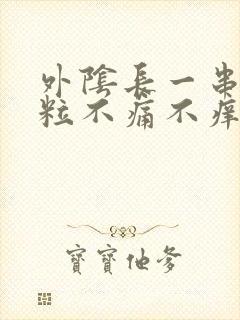 外陰長一串
粒不痛不痒
寶寶他爹